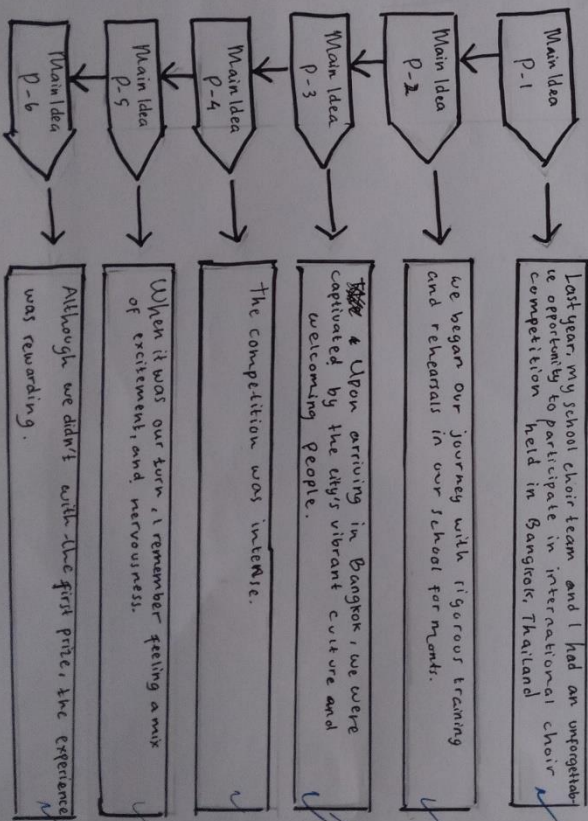 Main Idea
P-1
Last year, my school choir team and I had an unforgettab-
le opportunity to participate in international choir
competition held in Bangkok, Thailand
Main Idea
P-2
we began our journey with rigorous training
and rehearsals in our school for monts.
Main Idea
P-3
Upon arriving in Bangkok, we were
captivated by the city's vibrant culture and
welcoming people.
Main Idea
P-4
The competition was intense.
Main Idea
P-5
When it was our turn, I remember feeling a mix
of excitement, and nervousness.
Main Idea
P-6
Although we didn't with the first prize, the experience
was rewarding.